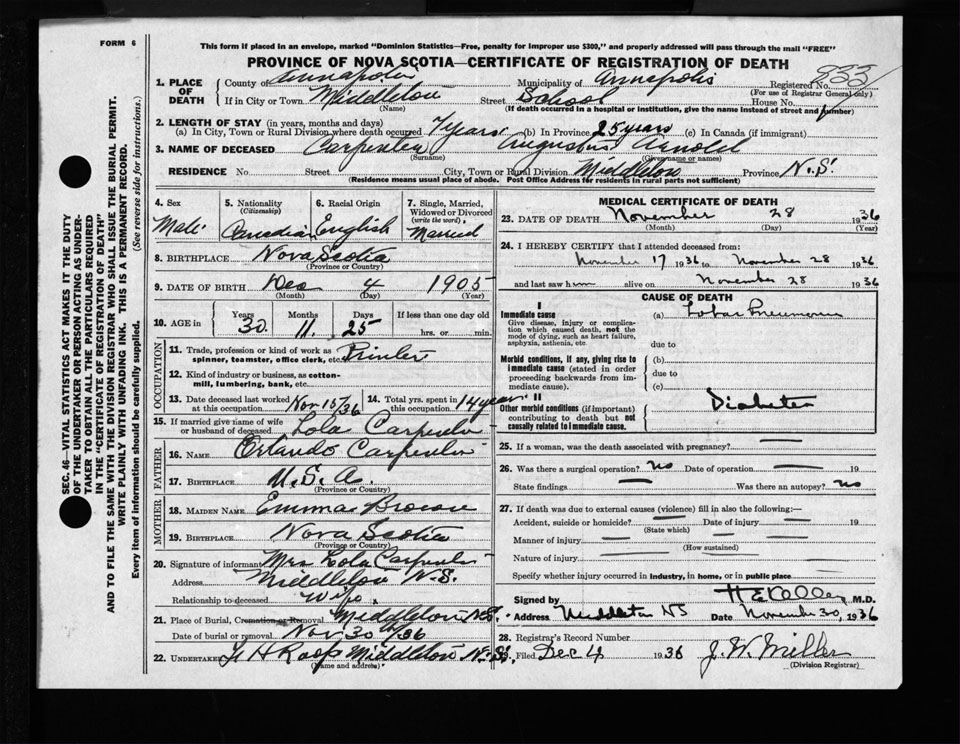 FORM 6
This form if placed in an envelope, marked "Dominion Statistics—Free, penalty for improper use $300," and properly addressed will pass through the mail "FREE"
PROVINCE OF NOVA SCOTIA—CERTIFICATE OF REGISTRATION OF DEATH
1. PLACE OF DEATH County of Annapolis Municipality of Annapolis Registered No. 833
(For use of Registrar General only)
If in City or Town Middleton Street School House No.
(Name) (If death occurred in a hospital or institution, give the name instead of street and number)
2. LENGTH OF STAY (in years, months and days)
(a) In City, Town or Rural Division where death occurred 7 years (b) In Province 25 years (c) In Canada (if immigrant)
3. NAME OF DECEASED Carpenter Augustus Arnold
(Surname) (Given name or names)
RESIDENCE No Street City, Town or Rural Division Middleton Province N.S.
(Residence means usual place of abode. Post Office Address for residents in rural parts not sufficient)
4. Sex Male
5. Nationality (Citizenship) Canadian
6. Racial Origin English
7. Single, Married, Widowed or Divorced (write the word) Married
8. BIRTHPLACE Nova Scotia
(Province or Country)
9. DATE OF BIRTH Dec 4 1905
(Month) (Day) (Year)
10. AGE in Years 30 Months 11 Days 25 If less than one day old hrs. or min.
OCCUPATION
11. Trade, profession or kind of work as spinner, teamster, office clerk, etc. Printer
12. Kind of industry or business, as cotton-mill, lumbering, bank, etc.
13. Date deceased last worked at this occupation Nov 15/36
14. Total yrs. spent in this occupation 14 years
15. If married give name of wife or husband of deceased Lola Carpenter
FATHER
16. NAME Orlando Carpenter
17. BIRTHPLACE U.S.A.
(Province or Country)
MOTHER
18. MAIDEN NAME Emma Brown
19. BIRTHPLACE Nova Scotia
(Province or Country)
20. Signature of informant Mrs Lola Carpenter
Address Middleton N.S.
Relationship to deceased Wife
21. Place of Burial, Cremation or Removal Middleton N.S.
Date of burial or removal Nov 30th/36
22. UNDERTAKER H Roop Middleton N.S.
(Name and address)
MEDICAL CERTIFICATE OF DEATH
23. DATE OF DEATH November 28 1936
(Month) (Day) (Year)
24. I HEREBY CERTIFY that I attended deceased from:
November 17 1936 to November 28 1936
and last saw him alive on November 28 1936
CAUSE OF DEATH
I
Immediate cause
Give disease, injury or complication which caused death, not the mode of dying, such as heart failure, asphyxia, asthenia, etc.
(a) Lobar Pneumonia
due to
Morbid conditions, if any, giving rise to immediate cause (stated in order proceeding backwards from immediate cause).
(b)
due to
(c)
II
Other morbid conditions (if important) contributing to death but not causally related to immediate cause.
Diabetes
25. If a woman, was the death associated with pregnancy?
26. Was there a surgical operation? No Date of operation 19
State findings Was there an autopsy? No
27. If death was due to external causes (violence) fill in also the following:—
Accident, suicide or homicide? Date of injury 19
(State which)
Manner of injury
(How sustained)
Nature of injury
Specify whether injury occurred in industry, in home, or in public place
Signed by H E Kelley M.D.
Address Middleton NS Date November 30, 1936
28. Registrar's Record Number
29. Filed Dec 4 1936 J. W. Miller
(Division Registrar)
SEC. 46—VITAL STATISTICS ACT MAKES IT THE DUTY
OF THE UNDERTAKER OR PERSON ACTING AS UNDER-
TAKER TO OBTAIN ALL THE PARTICULARS REQUIRED
IN THE "CERTIFICATE OF REGISTRATION OF DEATH"
AND TO FILE THE SAME WITH THE DIVISION REGISTRAR WHO SHALL ISSUE THE BURIAL PERMIT.
WRITE PLAINLY WITH UNFADING INK. THIS IS A PERMANENT RECORD.
Every item of information should be carefully supplied. (See reverse side for instructions.)